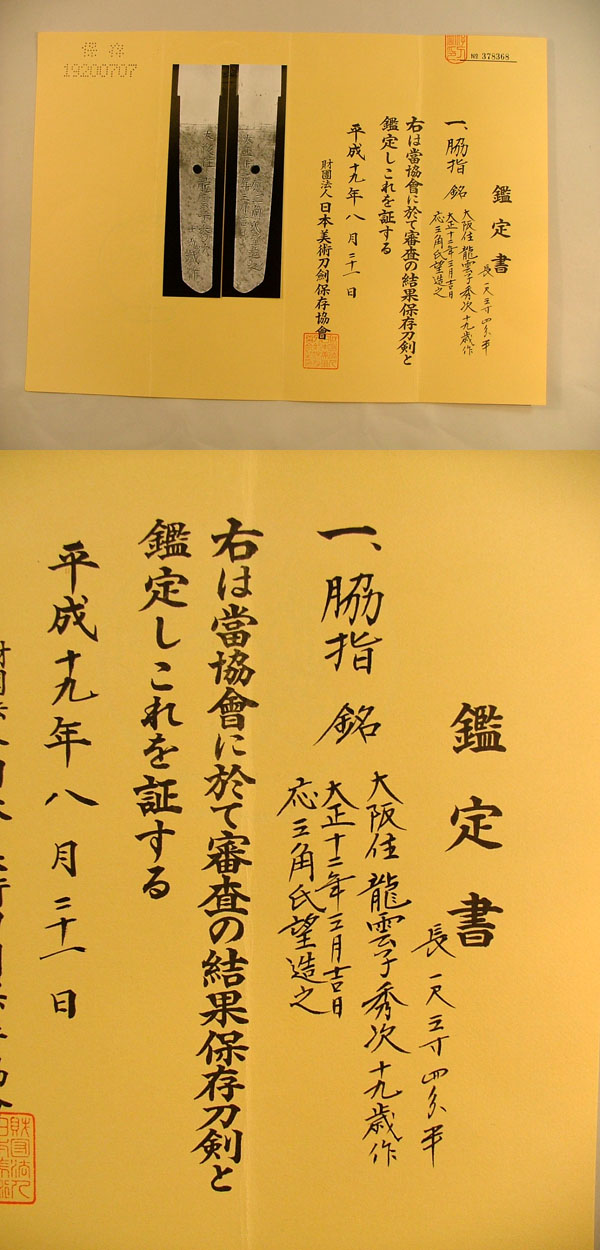 保存
19200707
№ 378368
鑑定書
長一尺三寸四分半
一、脇指 銘
大阪住龍雲子秀次十九歳作
大正十二年三月吉日
応三角氏望造之
右は當協會に於て審査の結果保存刀剣と
鑑定しこれを証する
平成十九年八月三十一日
財團法人日本美術刀劍保存協會
鑑定書
長一尺三寸四分半
一、脇指 銘
大阪住龍雲子秀次十九歳作
大正十二年三月吉日
応三角氏望造之
右は當協會に於て審査の結果保存刀剣と
鑑定しこれを証する
平成十九年八月三十一日